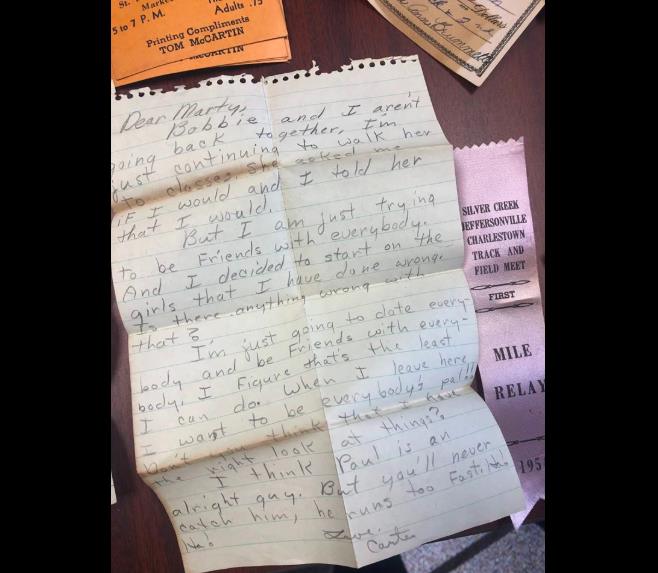 St.
Market
5 to 7 P. M.
The
Adults .75
Printing Compliments
TOM McCARTIN
McCARTIN
Dollars
Dear Marty,
Bobbie and I aren't
going back together, I'm
just continuing to walk her
to classes, she asked me
if I would and I told her
that I would.
But I am just trying
to be Friends with everybody.
And I decided to start on the
girls that I have done wrong.
Is there anything wrong with
that?
I'm just going to date every-
body and be Friends with every-
body, I Figure that's the least
I can do. When I leave here
I want to be everybody's pal!!!
Don't you think that I have
the right look at things?
I think Paul is an
alright guy. But you'll never
catch him, he runs too Fast. Ha!
Ha!
Love,
Carter
SILVER CREEK
JEFFERSONVILLE
CHARLESTOWN
TRACK AND
FIELD MEET
FIRST
MILE
RELAY
195